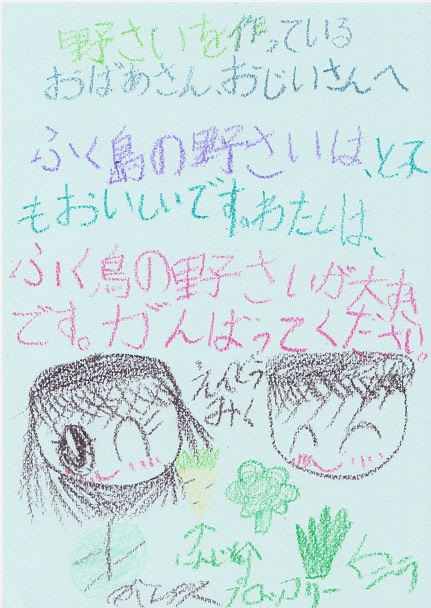 野さいを作っている
おばあさん、おじいさんへ
ふく島の野さいは、とて
もおいしいです。わたしは、
ふく島の野さいが大すき
です。がんばってください。
みく
ブロッコリー